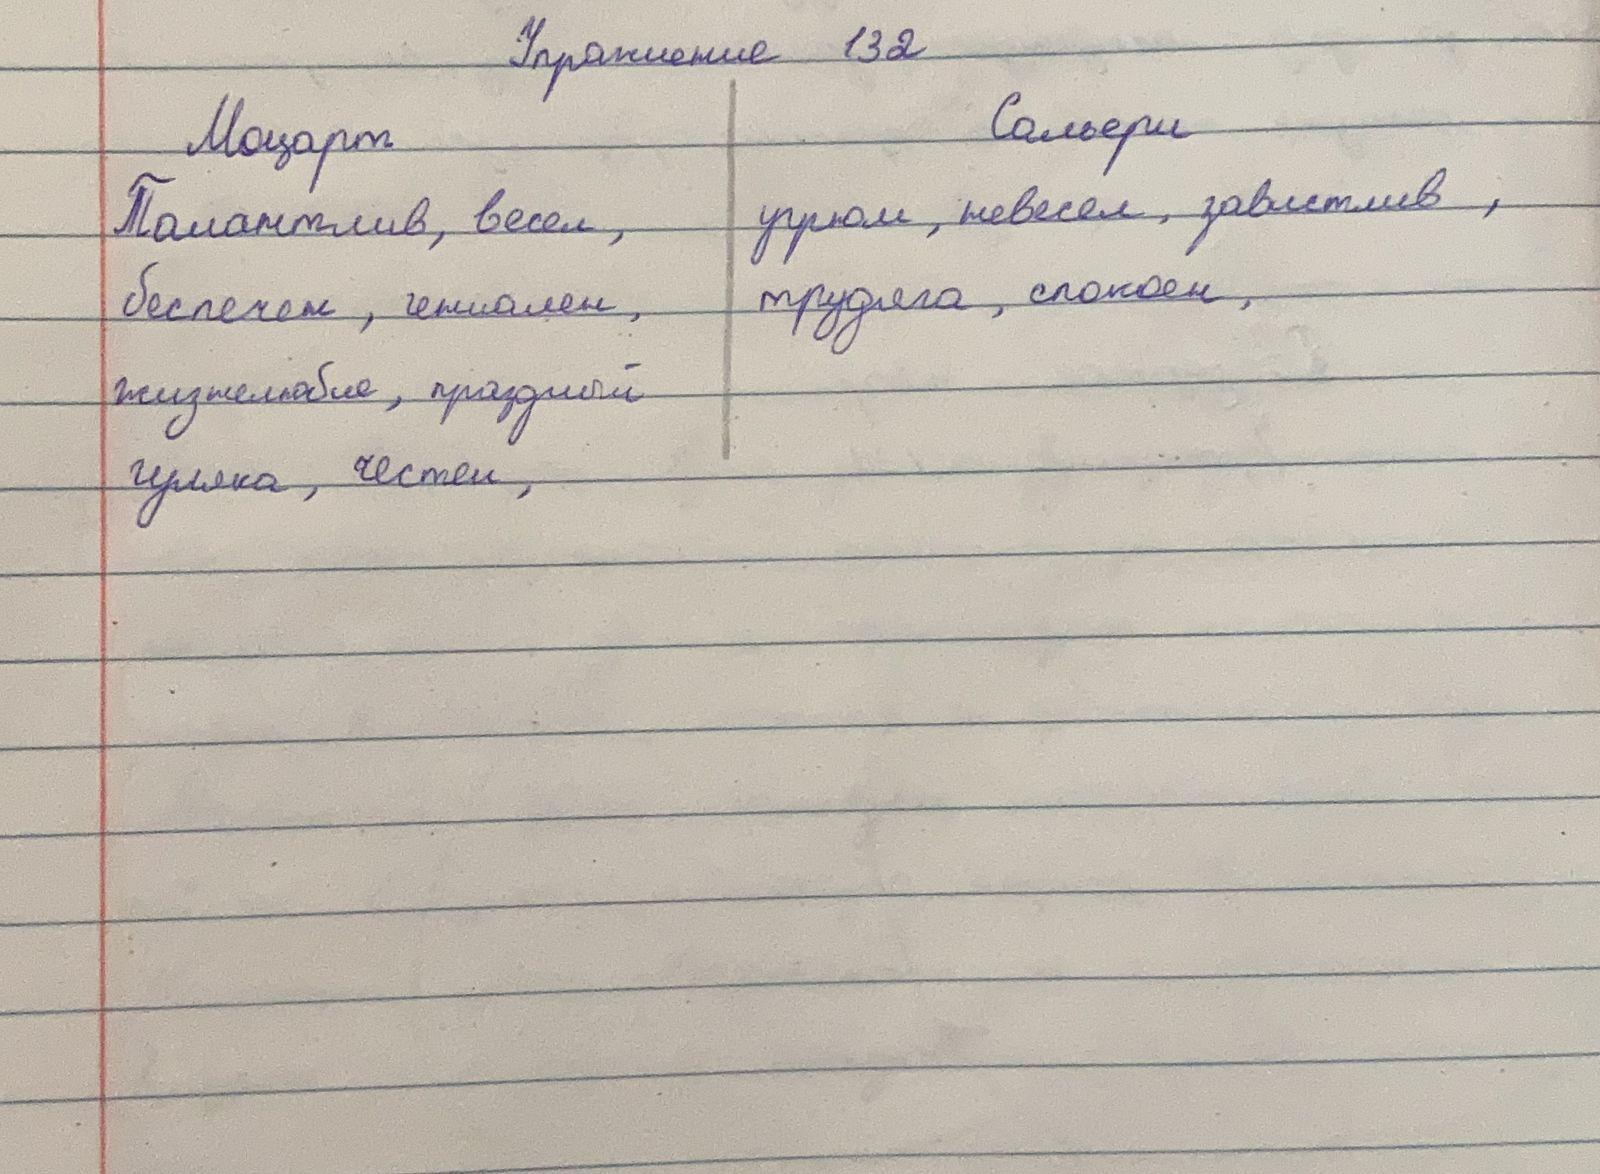 Упражнение 132
Моцарт
Сальери
Талантлив, весел,
беспечен, гениален,
жизнелюбие, праздный
гуляка, честен,
угрюм, невесел, завистлив,
трудяга, спокоен,